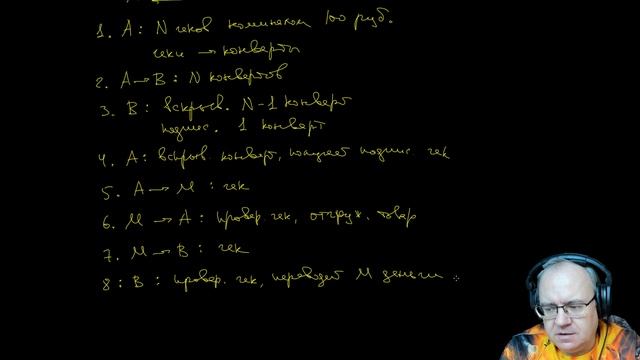 1. А: N чеков номиналом 100 руб.
чеки → конверты
2. А → В : N конвертов
3. В : вскрыв. N-1 конверт
подпис. 1 конверт
4. А: вскрыв конверт, получает подпис. чек
5. А → М : чек
6. М → А : провер чек, отгруж. товар
7. М → В : чек
8 : В : провер. чек, переводит М деньги